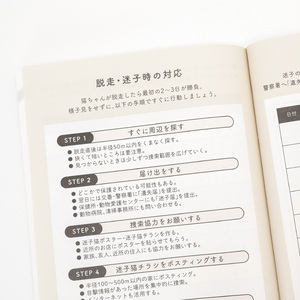 脱走・迷子時の対応
猫ちゃんが脱走したら最初の2〜3日が勝負。
様子見をせずに、以下の手順ですぐに行動しましょう。
STEP 1
すぐに周辺を探す
● 脱走直後は半径50m以内をくまなく探す。
● 狭くて暗いところは要注意。
● 見つからないときは少しずつ捜索範囲を広げていく。
STEP 2
届け出をする
● どこかで保護されている可能性もある。
● 翌日には交番・警察署に「遺失届」を提出。
● 保健所・動物愛護センターにも「迷子届」を提出。
● 動物病院、清掃事務所にも問い合わせる。
STEP 3
捜索協力をお願いする
● 迷子猫ポスター・迷子チラシを作る。
● 近所のお店にポスターを貼らせてもらう。
● 家族、友人、近所の住人にも協力をお願いする。
STEP 4
迷子猫チラシをポスティングする
● 半径100〜500m以内の家にポスティング。
● 目撃情報があった場所を集中的に捜索。
インターネットも活用する。
迷子の
警察署へ「遺失
日付